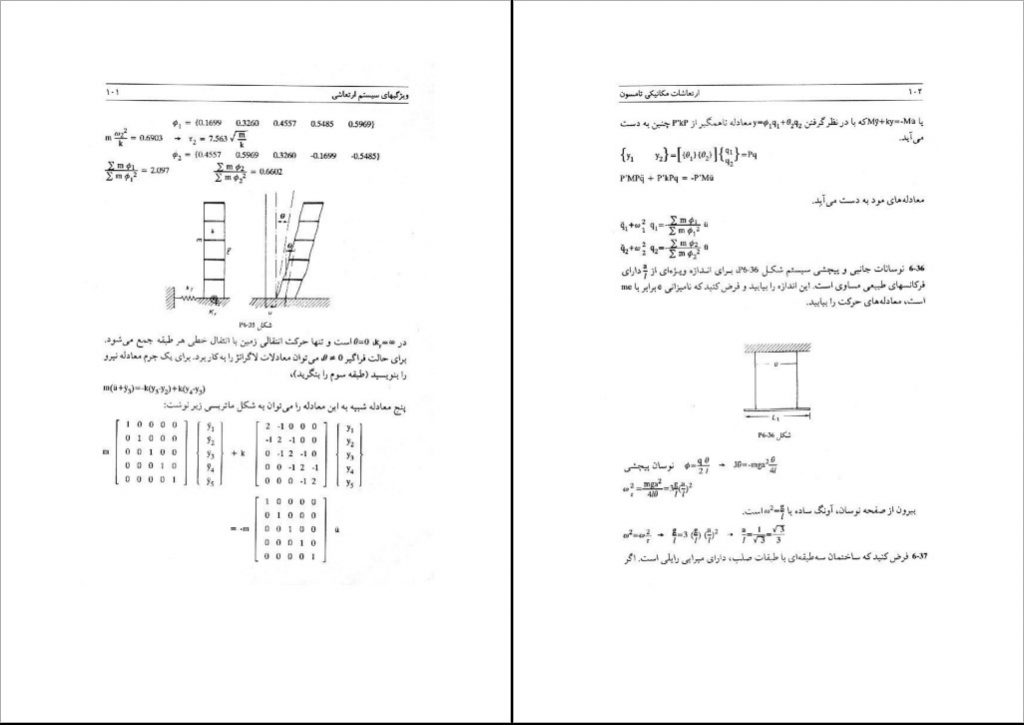 ویژگیهای سیستم ارتعاشی ۱۰۱
ϕ₁ = {0.1699 0.3260 0.4557 0.5485 0.5969}
m ω₂²/k = 0.6903 → τ₂ = 7.563 √(m/k)
ϕ₂ = {0.4557 0.5969 0.3260 -0.1699 -0.5485}
∑ m ϕ₁ / ∑ m ϕ₁² = 2.097 ∑ m ϕ₂ / ∑ m ϕ₂² = 0.6602
θ
k
θ
m
u
شکل P6-35
در ∞=kᵣ، θ=0 است و تنها حرکت انتقالی زمین با انتقال خطی هر طبقه جمع می‌شود.
برای حالت فراگیر θ ≠ 0 می‌توان معادلات لاگرانژ را به‌کار برد. برای یک جرم معادله نیرو
را بنویسید (طبقه سوم را بنگرید)،
m(ü+ÿ₃)=-k(y₃-y₂)+k(y₄-y₃)
پنج معادله شبیه به این معادله را می‌توان به شکل ماتریسی زیر نوشت:
1 0 0 0 0 ÿ₁ 2 -1 0 0 0 y₁
0 1 0 0 0 ÿ₂ -1 2 -1 0 0 y₂
m 0 0 1 0 0 ÿ₃ + k 0 -1 2 -1 0 y₃
0 0 0 1 0 ÿ₄ 0 0 -1 2 -1 y₄
0 0 0 0 1 ÿ₅ 0 0 0 -1 2 y₅
1 0 0 0 0
0 1 0 0 0
= -m 0 0 1 0 0 ü
0 0 0 1 0
0 0 0 0 1
۱۰۲ ارتعاشات مکانیکی تامسون
یا Mÿ+ky=-Mü که با در نظر گرفتن y=ϕ₁q₁+θ₂q₂ معادله ناهمگیر از P'kP چنین به دست
می‌آید.
{y₁ y₂}=[{θ₁}{θ₂}]{q₁ q₂}=Pq
P'MPq̈ + P'kPq = -P'Mü
معادله‌های مود به دست می‌آید.
q̈₁+ω₁² q₁=-∑ m ϕ₁ / ∑ m ϕ₁² ü
q̈₂+ω₂² q₂=-∑ m ϕ₂ / ∑ m ϕ₂² ü
6-36 نوسانات جانبی و پیچشی سیستم شکل P6-36، برای اندازه ویژه‌ای از a/l دارای
فرکانسهای طبیعی مساوی است. این اندازه را بیابید و فرض کنید که نامیزانی e برابر با me
است، معادله‌های حرکت را بیابید.
شکل P6-36
نوسان پیچشی
بیرون از صفحه نوسان، آونگ ساده با ω²=g/l است.
ω²=ωᵣ² → g/l=3 (g/l) (a/l)² → a/l=1/√3=√3/3
6-37 فرض کنید که ساختمان سه‌طبقه‌ای با طبقات صلب، دارای میرایی رایلی است. اگر